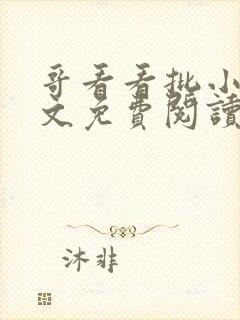 哥看看批小
文免費閱讀
沐非